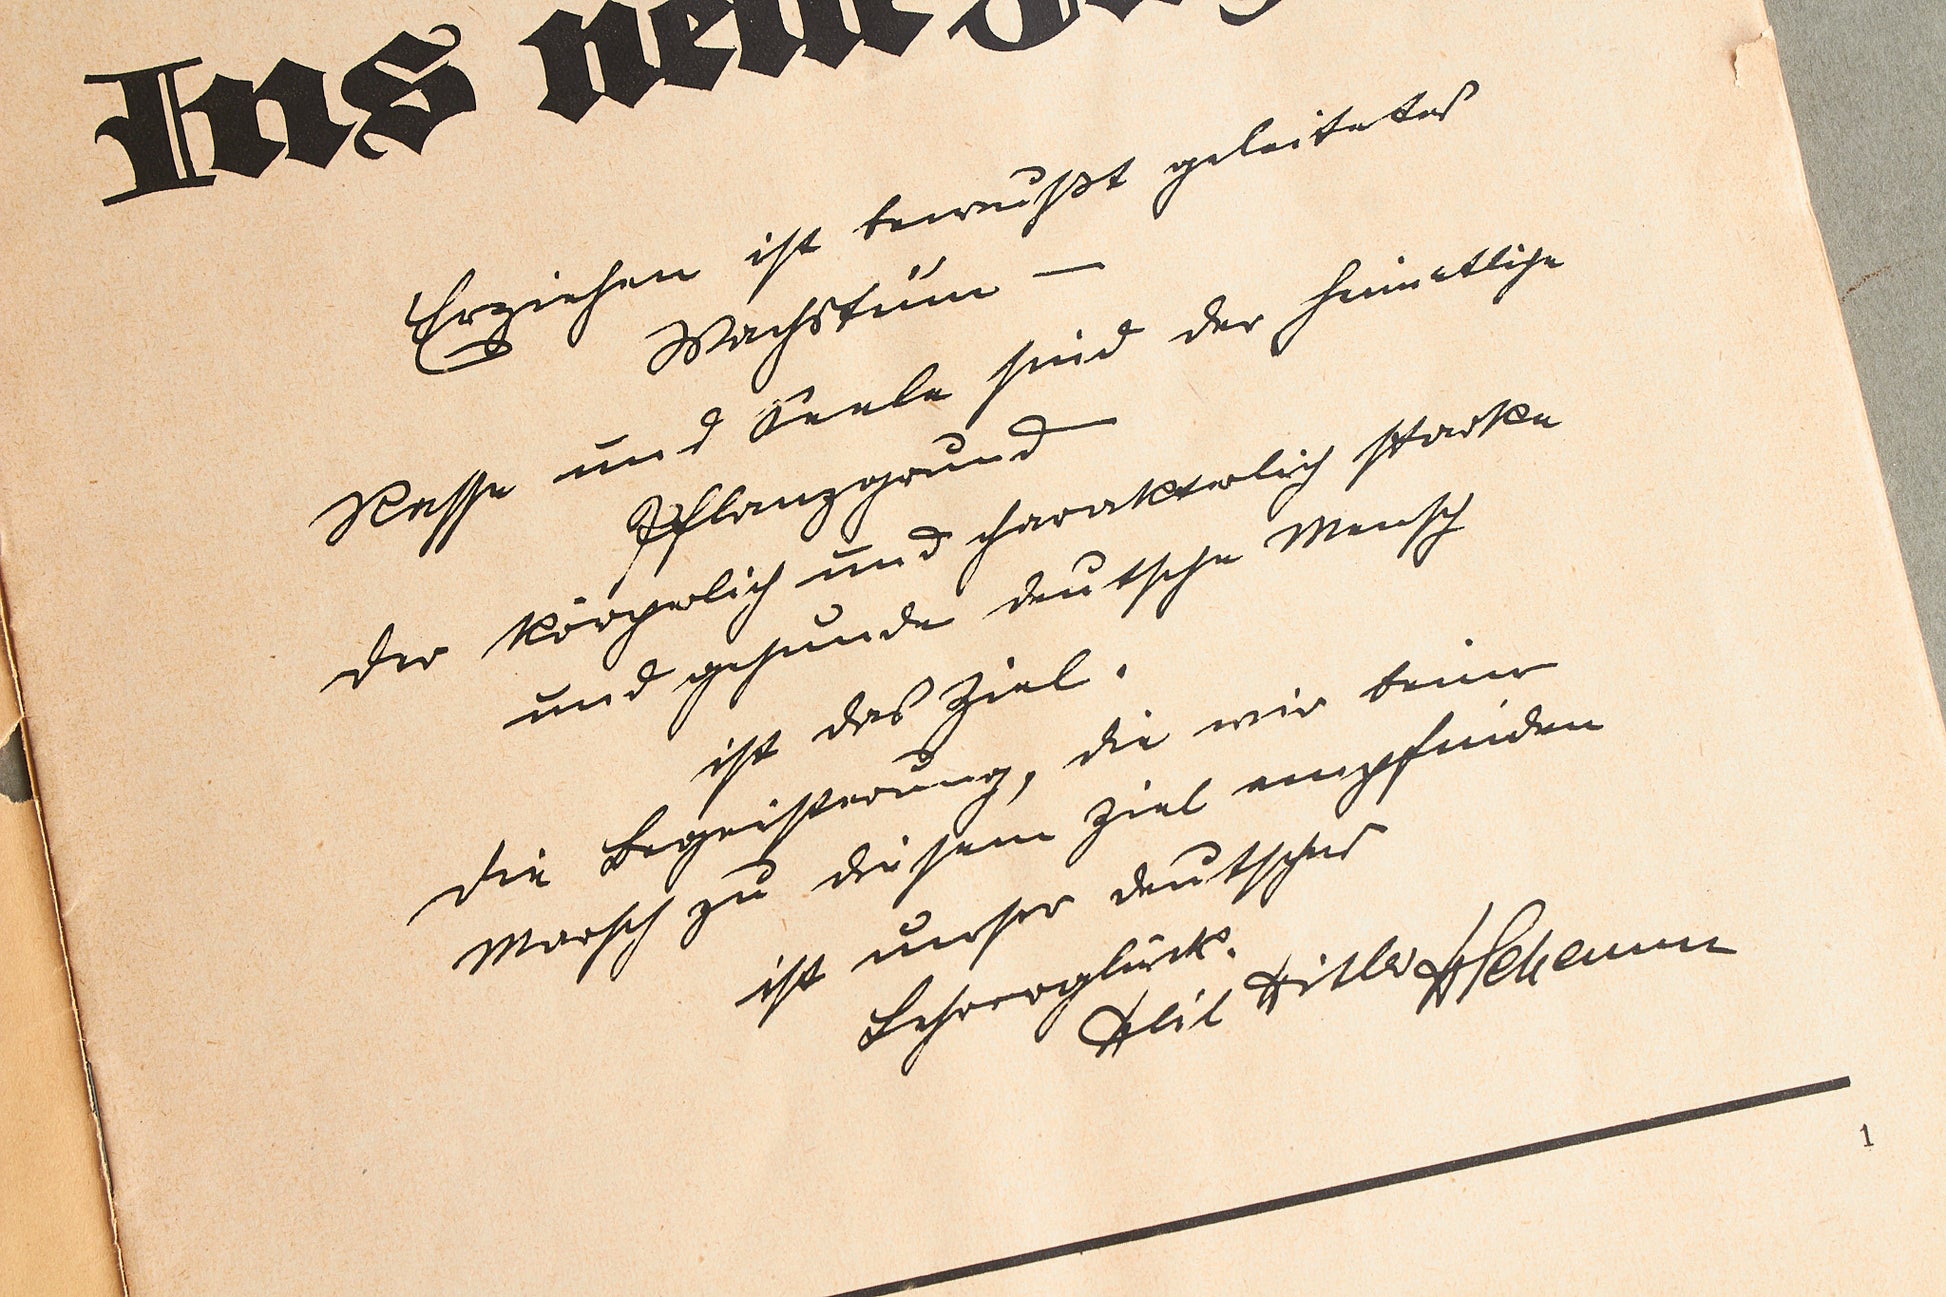 Ins neue
Erziehen ist bewußt geleitetes
Wachstum —
Rasse und Seele sind der heimatliche
Pflanzgrund —
Der körperlich und charakterlich starke
und gesunde deutsche Mensch
ist das Ziel.
Die Begeisterung, die wir beim
Marsch zu diesem Ziel empfinden
ist unser deutsches
Lehrerglück.
Heil Hitler HSchemm
1